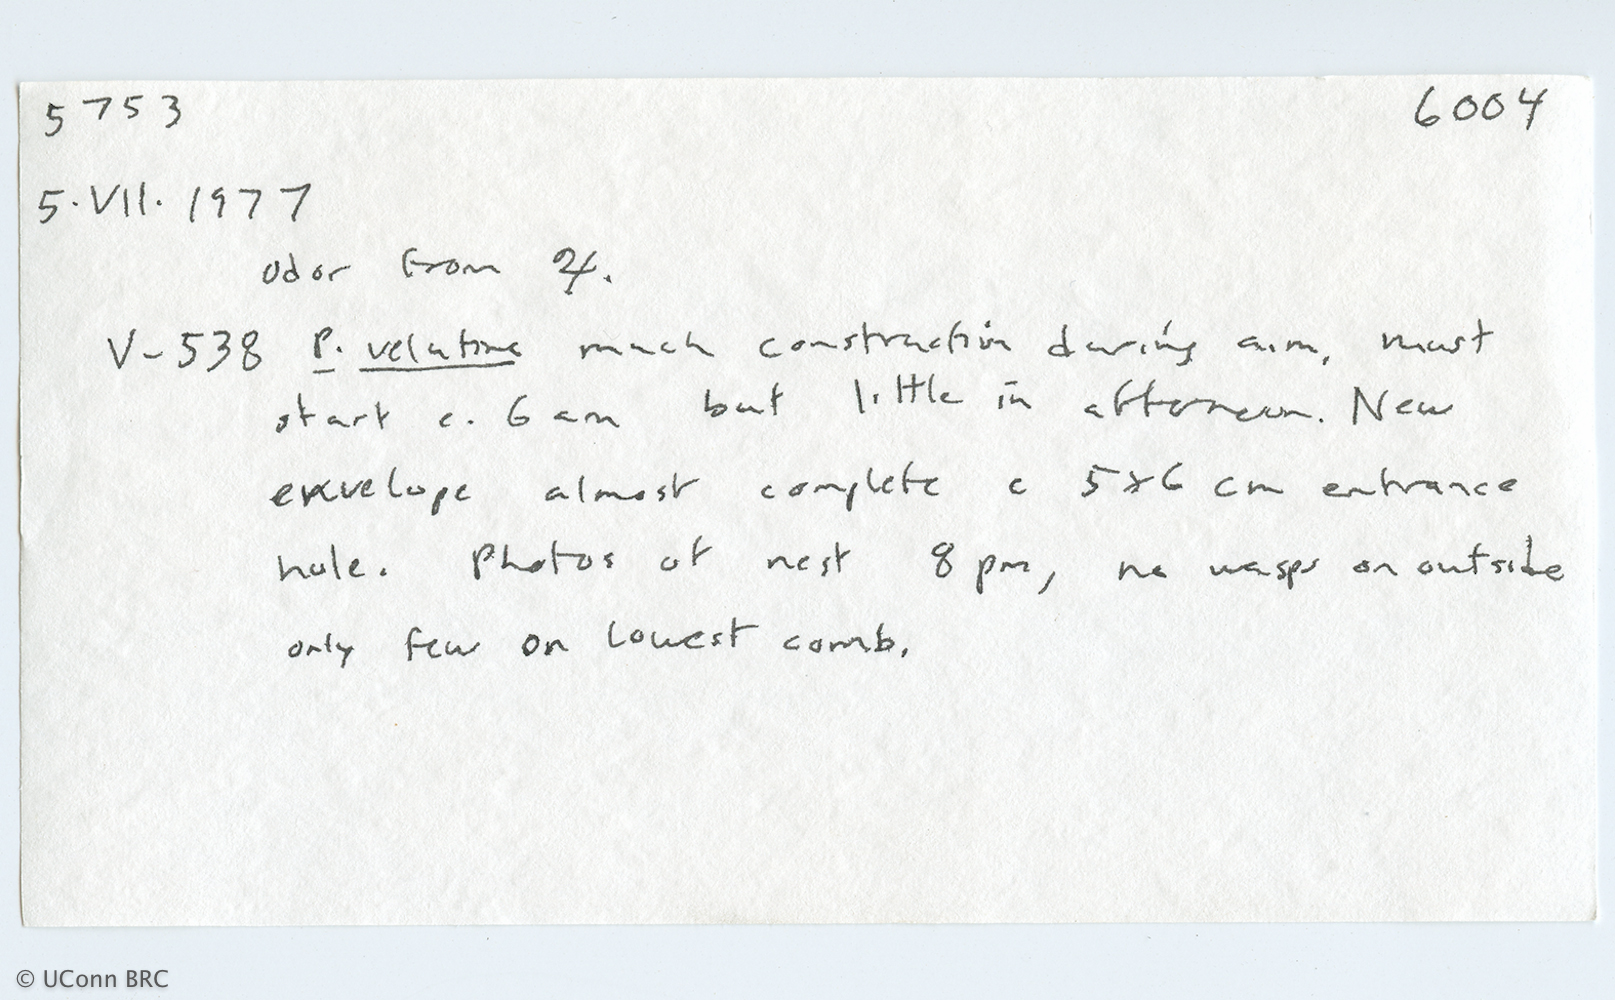 5753
6004
5·VII·1977
odor from ♃.
V-538 P. velutina much construction during a.m, must
start c. 6 am but little in afternoon. New
envelope almost complete c 5x6 cm entrance
hole. Photos of nest 8 pm, no wasps on outside
only few on lowest comb.
© UConn BRC